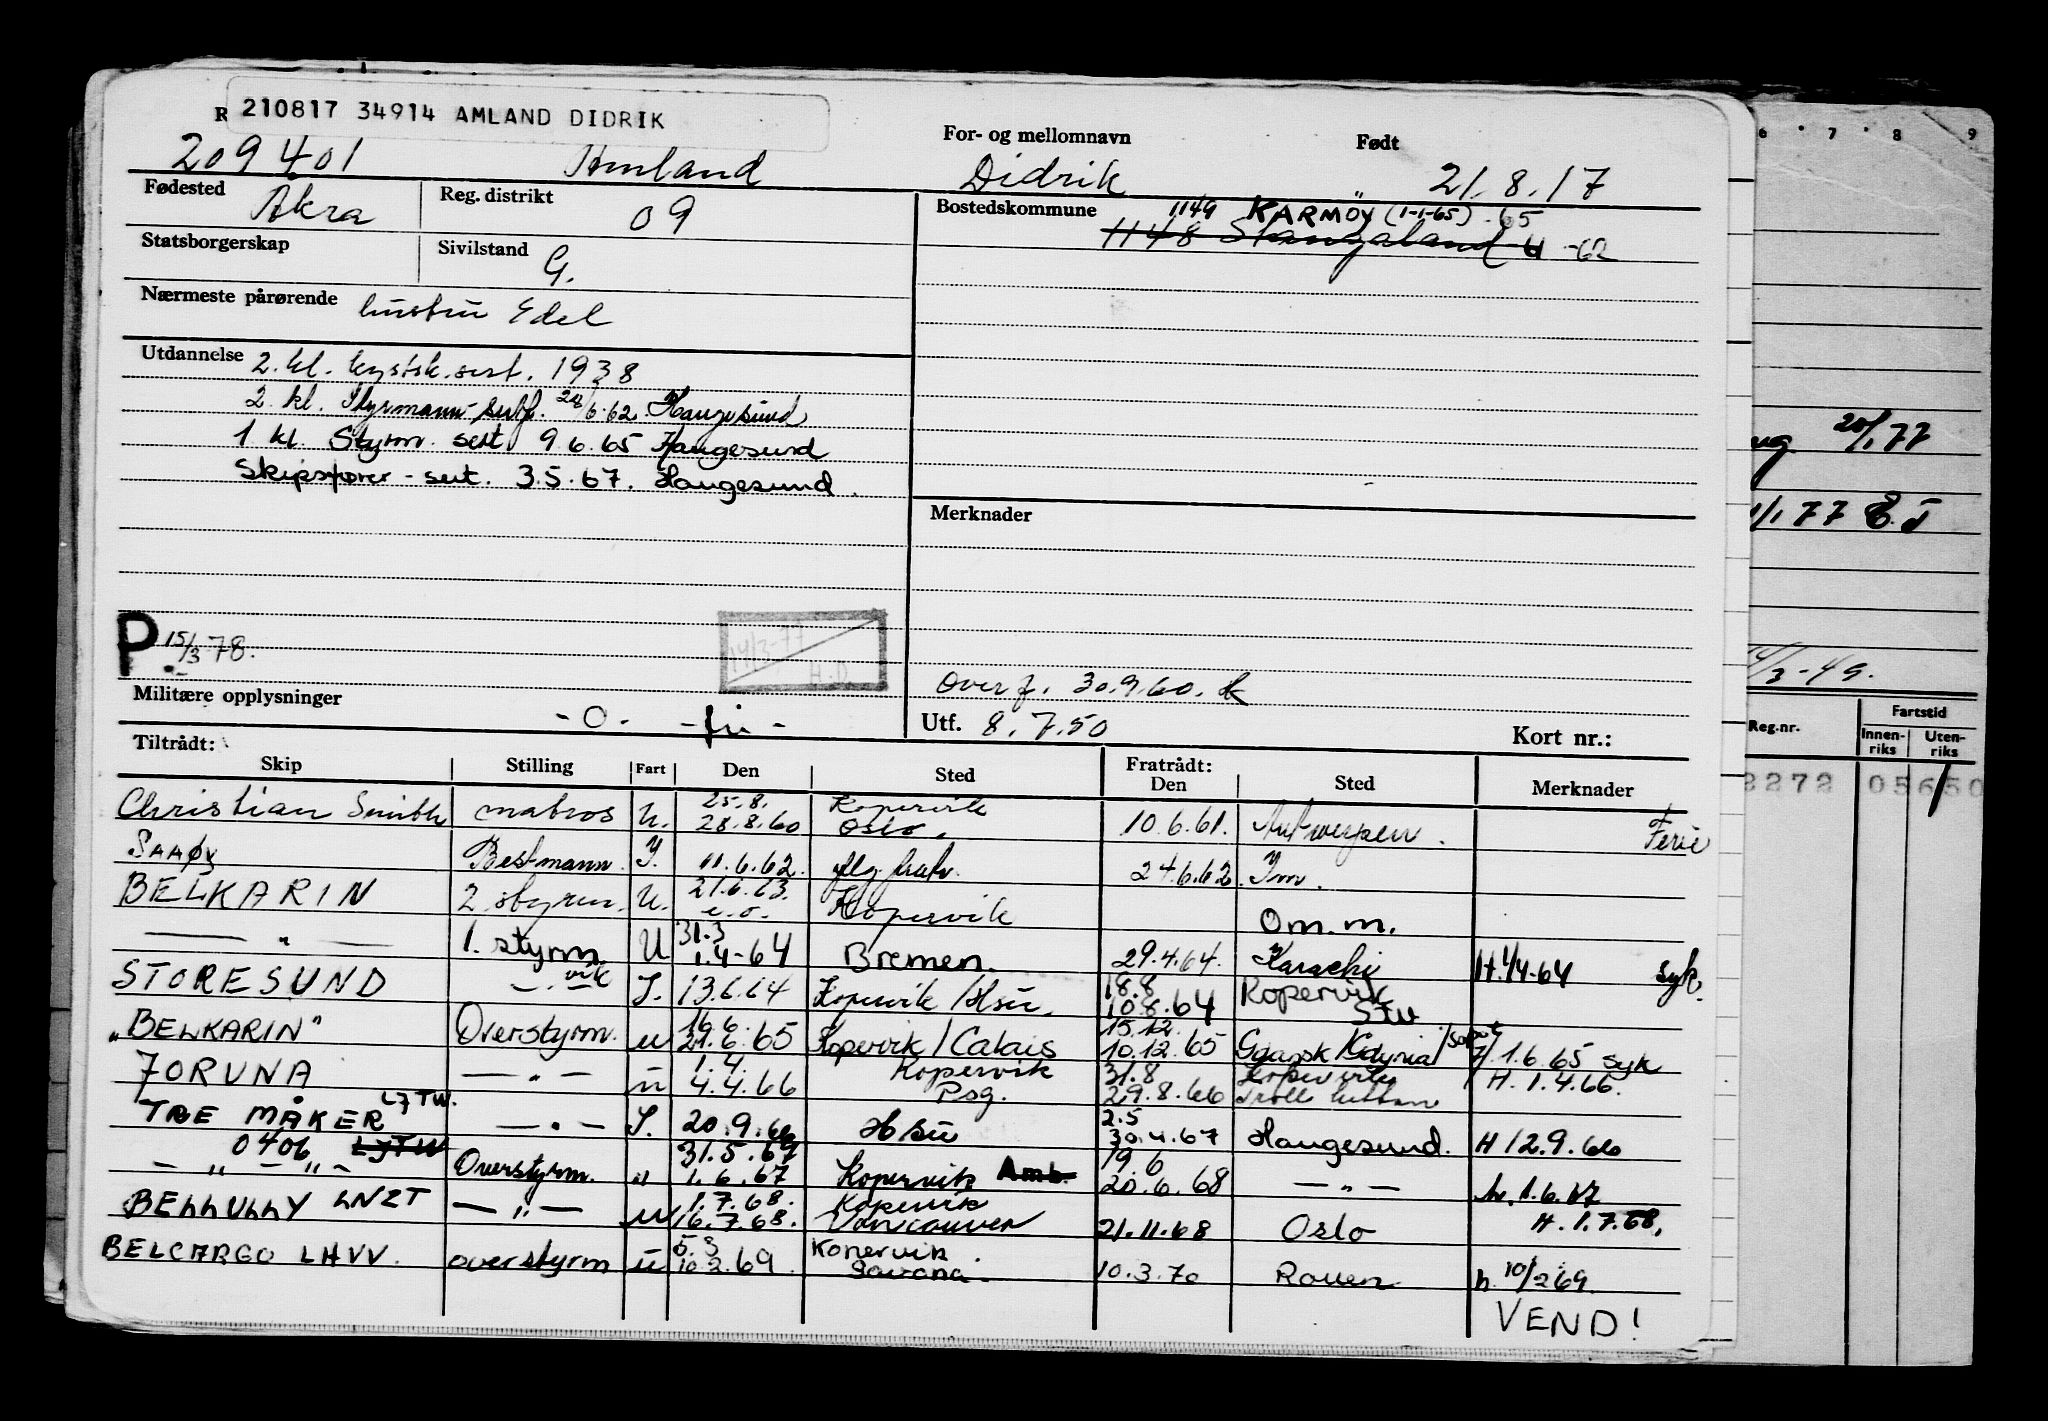 210817 34914 AMLAND DIDRIK
R
209401 Amland
For- og mellomnavn Didrik
Født 21.8.17
Fødested Akra
Reg. distrikt 09
Bostedskommune 1149 KARMÖY (1-1-65) -65
1148 Stangaland -62
Statsborgerskap
Sivilstand G.
Nærmeste pårørende hustru Edel
Utdannelse 2. kl. kystsk. sert. 1938
2. kl. Styrmann 6.62 Haugesund
1 kl. Styrm. sert 9.6.65 Haugesund
Skipsfører - sert. 3.5.67. Haugesund.
Merknader
P. 15/3 78.
14/3-77
H.D
Overf. 30.9.60.
Militære opplysninger -0- -fri-
Utf. 8.7.50
Kort nr.:
Tiltrådt: Fratrådt:
Skip Stilling Fart Den Sted Den Sted Merknader
Christian Smith matros U. 25.8. 28.8.60 Kopervik Oslo. 10.6.61. Antwerpen. Ferie
SAAØY Bestmann. I. 11.6.62. 24.6.62. Im.
BELKARIN 2. styrm. U. 21.6.63. e.o. Kopervik Om.m.
— " — 1. styrm. U 31.3 1.4-64 Bremen. 29.4.64. Karachi H. 1/4-64 syk.
STORESUND — " — vik I. 13.6.64 Kopervik / Hsu. 18.8 10.8.64 Kopervik
"BELKARIN" Overstyrm. u 16.6. 29.6.65 Kopervik / Calais 15.12. 10.12.65 Gdansk / Gdynia H. 1.6.65 syk
— " — u 1.4. 4.4.66 Kopervik Psg. 31.8 29.8.66 Kopervik H. 1.4.66.
TRE MÅKER LJTW. — " — I. 20.9.66 Hsu 2.5 30.4.67 Haugesund. H 12.9.66
0406 LJTW
— " — " — Overstyrm. " 31.5.67 1.6.67 Kopervik Amb. 19.6 20.6.68 — " — h. 1.6.67
BELLULLY LNZT — " — u 1.7.68. 16.7.68. Kopervik Vancouver 21.11.68 Oslo H. 1.7.68.
BELCARGO LHVV. overstyrm u 5.3 10.2.69. Kopervik Savona. 10.3.70 Rouen h. 10/2 69.
VEND!
6 7 8 9
20/1 77
1/1 77 E.T
/3-49.
Reg.nr. Fartstid
Innenriks Utenriks
2272 05650